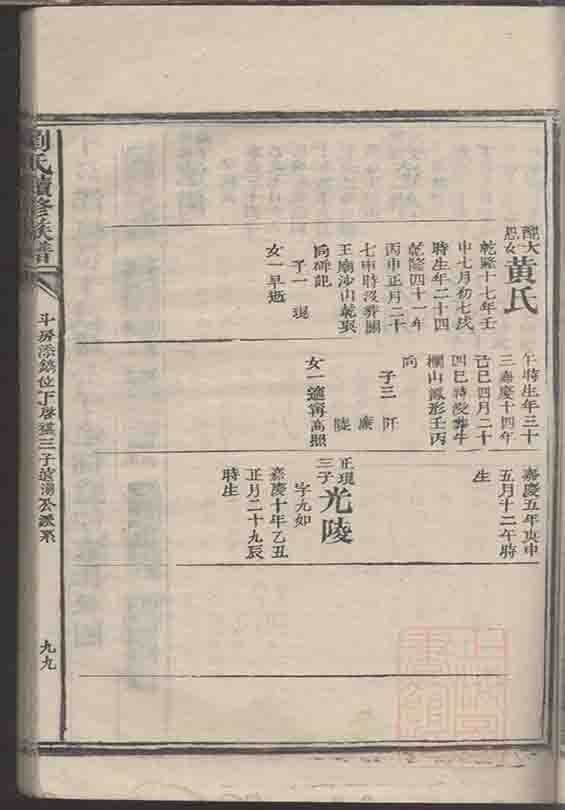 劉氏續修族譜
配大
恩女
黃氏
乾隆十七年壬
申七月初七戌
時生年二十四
乾隆四十一年
丙申正月二十
七申時沒葬關
王廟沙山乾巽
向碑記
子一 現
女一早逝
午時生年三十
三嘉慶十四年
己巳四月二十
四巳時沒葬牛
欄山鳳形壬丙
向
子三 阡
廉
陵
女一適寗高照
嘉慶五年庚申
五月十二午時
生
正現
三子
光陵
字九如
嘉慶十年乙丑
正月二十九辰
時生
九九